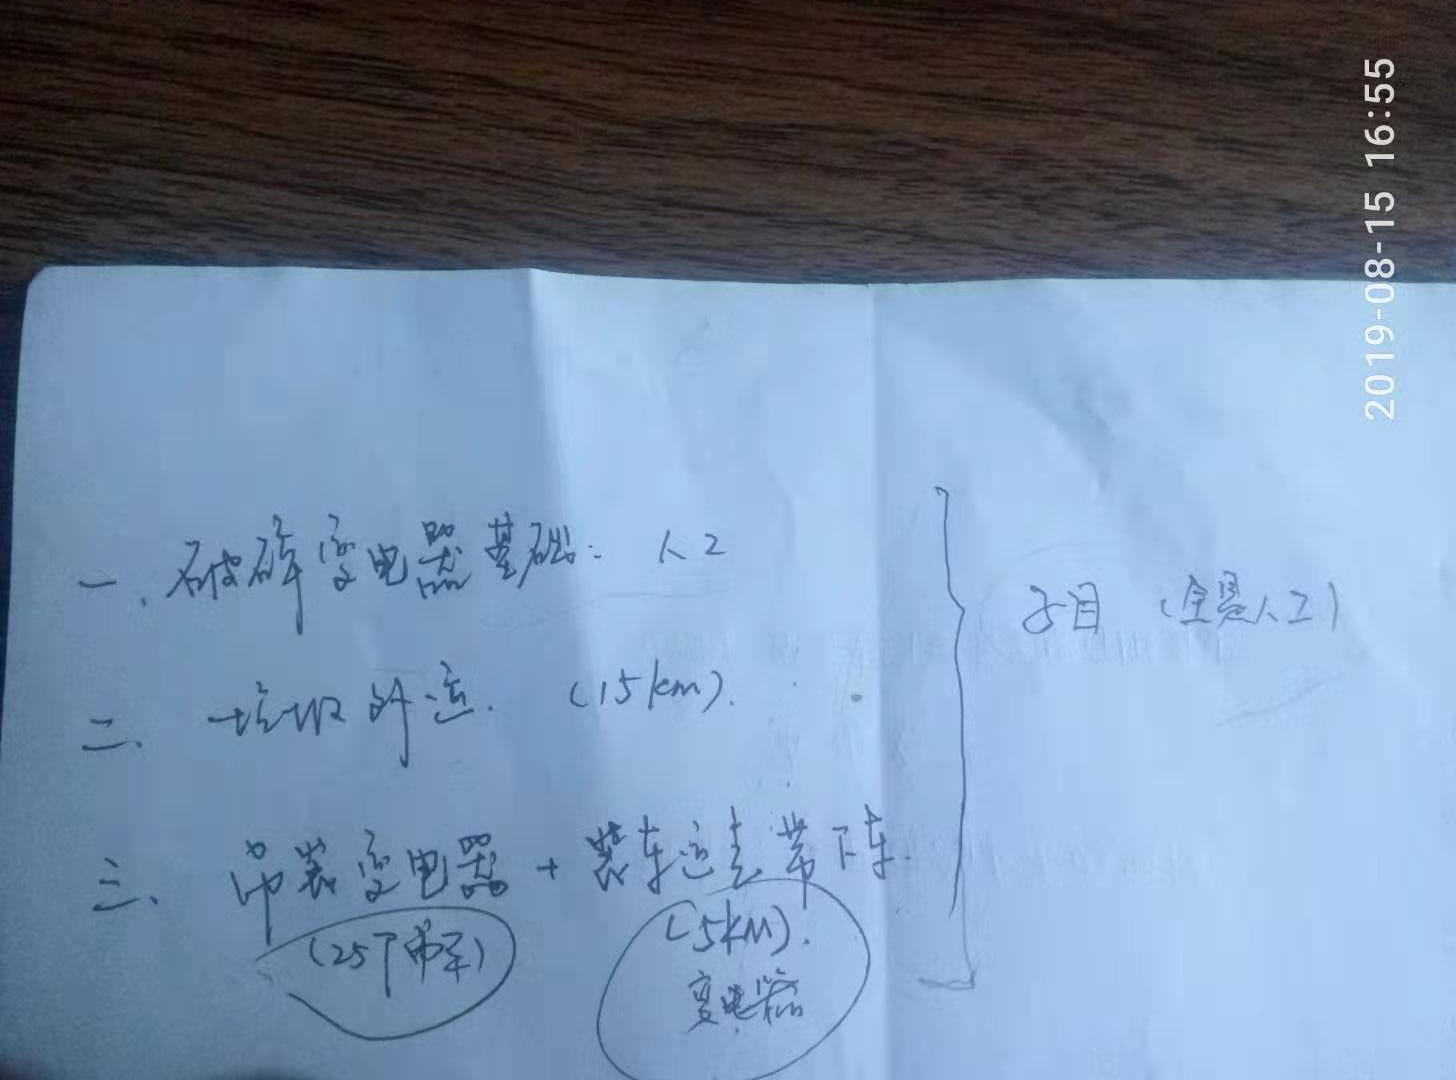 2019-08-15 16:55
一、破碎变电器基础: 人工
子目 (全是人工)
二、垃圾外运. (15km).
三、吊装变电器 + 装车运走带下车.
(25T吊车)
(5kM).
变电器